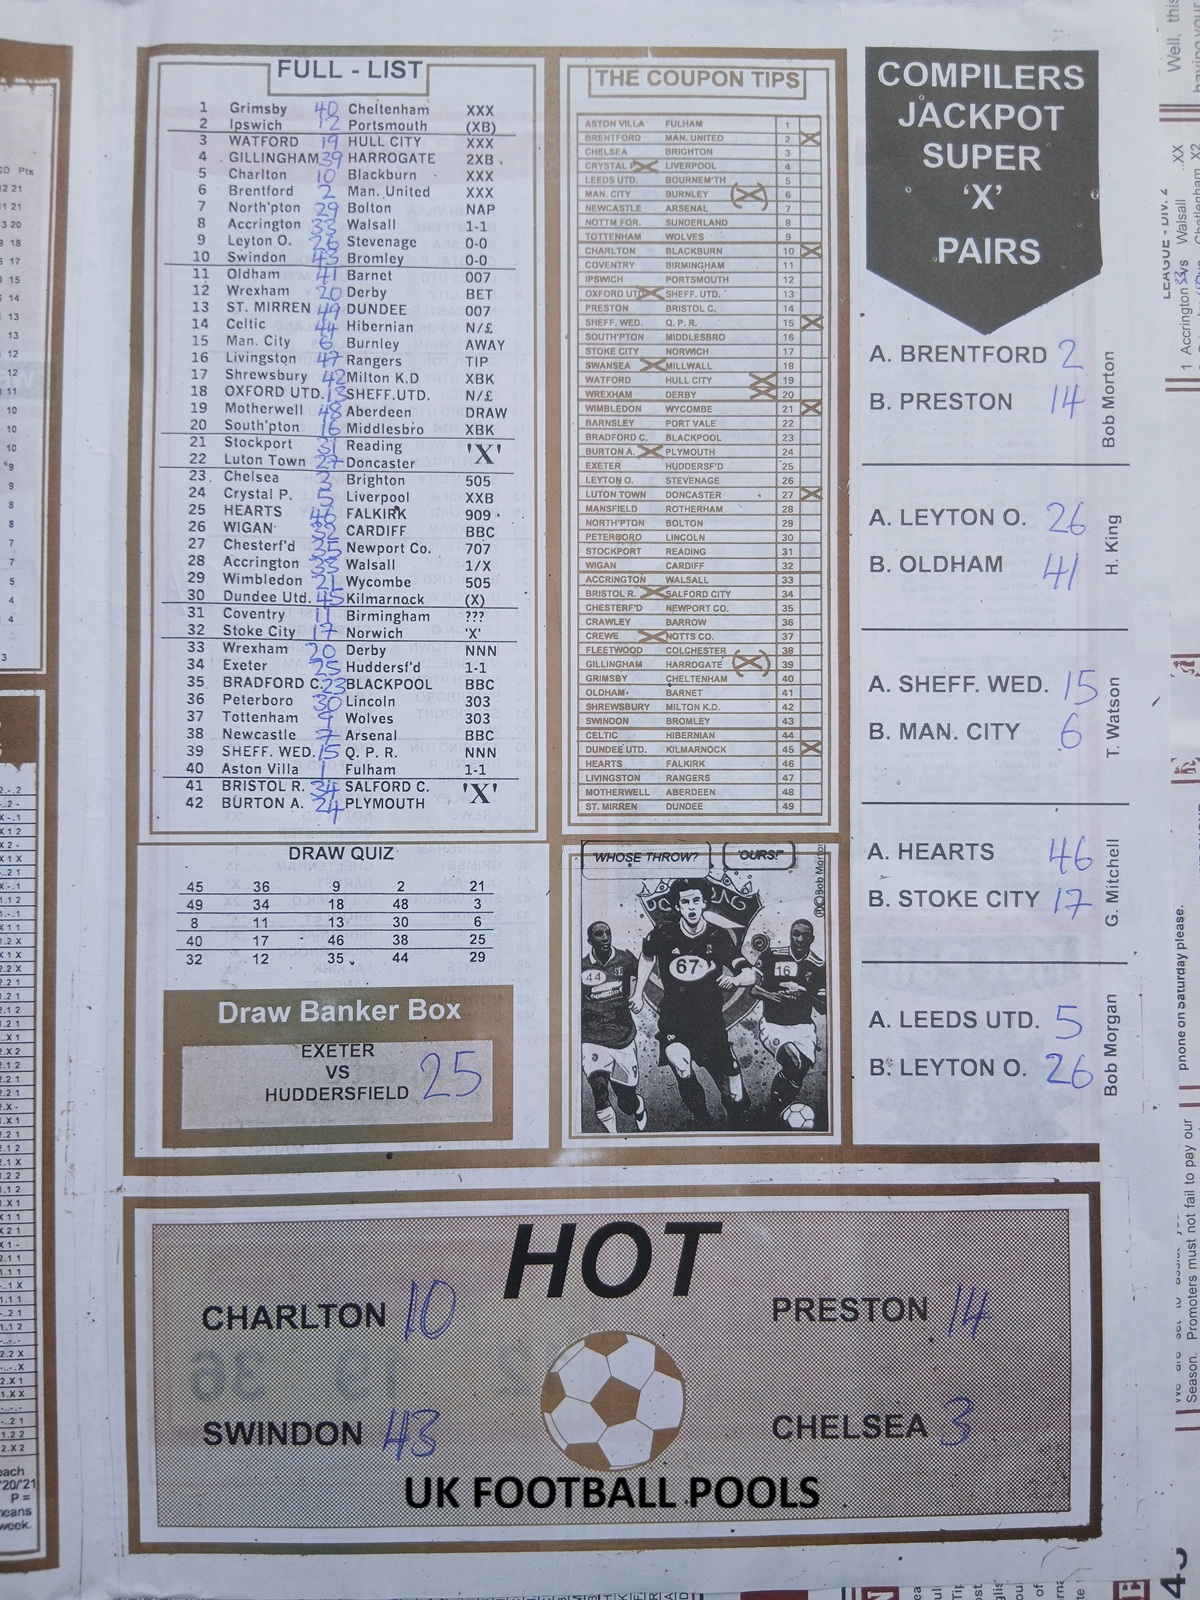 FULL - LIST
1 Grimsby 40 Cheltenham XXX
2 Ipswich 12 Portsmouth (XB)
3 WATFORD 19 HULL CITY XXX
4 GILLINGHAM 39 HARROGATE 2XB
5 Charlton 10 Blackburn XXX
6 Brentford 2 Man. United XXX
7 North'pton 29 Bolton NAP
8 Accrington 33 Walsall 1-1
9 Leyton O. 26 Stevenage 0-0
10 Swindon 43 Bromley 0-0
11 Oldham 41 Barnet 007
12 Wrexham 20 Derby BET
13 ST. MIRREN 49 DUNDEE 007
14 Celtic 44 Hibernian N/£
15 Man. City 6 Burnley AWAY
16 Livingston 47 Rangers TIP
17 Shrewsbury 42 Milton K.D XBK
18 OXFORD UTD. 13 SHEFF.UTD. N/£
19 Motherwell 48 Aberdeen DRAW
20 South'pton 16 Middlesbro XBK
21 Stockport 31 Reading 'X'
22 Luton Town 27 Doncaster
23 Chelsea 3 Brighton 505
24 Crystal P. 5 Liverpool XXB
25 HEARTS 46 FALKIRK 909
26 WIGAN 32 CARDIFF BBC
27 Chesterf'd 35 Newport Co. 707
28 Accrington 33 Walsall 1/X
29 Wimbledon 21 Wycombe 505
30 Dundee Utd. 45 Kilmarnock (X)
31 Coventry 11 Birmingham ???
32 Stoke City 17 Norwich 'X'
33 Wrexham 20 Derby NNN
34 Exeter 25 Huddersf'd 1-1
35 BRADFORD C. 23 BLACKPOOL BBC
36 Peterboro 30 Lincoln 303
37 Tottenham 9 Wolves 303
38 Newcastle 7 Arsenal BBC
39 SHEFF. WED. 15 Q. P. R. NNN
40 Aston Villa 1 Fulham 1-1
41 BRISTOL R. 34 SALFORD C. 'X'
42 BURTON A. 24 PLYMOUTH
DRAW QUIZ
45 36 9 2 21
49 34 18 48 3
8 11 13 30 6
40 17 46 38 25
32 12 35 44 29
Draw Banker Box
EXETER
VS
HUDDERSFIELD 25
THE COUPON TIPS
ASTON VILLA FULHAM 1
BRENTFORD MAN. UNITED 2 X
CHELSEA BRIGHTON 3
CRYSTAL P X LIVERPOOL 4
LEEDS UTD. BOURNEM'TH 5
MAN. CITY BURNLEY (X) 6
NEWCASTLE ARSENAL 7
NOTTM FOR. SUNDERLAND 8
TOTTENHAM WOLVES 9
CHARLTON BLACKBURN 10 X
COVENTRY BIRMINGHAM 11
IPSWICH PORTSMOUTH 12
OXFORD UTD X SHEFF. UTD. 13
PRESTON BRISTOL C. 14
SHEFF. WED. Q. P. R. 15 X
SOUTH'PTON MIDDLESBRO 16
STOKE CITY NORWICH 17
SWANSEA X MILLWALL 18
WATFORD HULL CITY X 19
WREXHAM DERBY X 20
WIMBLEDON WYCOMBE 21 X
BARNSLEY PORT VALE 22
BRADFORD C. BLACKPOOL 23
BURTON A. X PLYMOUTH 24
EXETER HUDDERSF'D 25
LEYTON O. STEVENAGE 26
LUTON TOWN DONCASTER 27 X
MANSFIELD ROTHERHAM 28
NORTH'PTON BOLTON 29
PETERBORO LINCOLN 30
STOCKPORT READING 31
WIGAN CARDIFF 32
ACCRINGTON WALSALL 33
BRISTOL R. X SALFORD CITY 34
CHESTERF'D NEWPORT CO. 35
CRAWLEY BARROW 36
CREWE X NOTTS CO. 37
FLEETWOOD COLCHESTER 38
GILLINGHAM HARROGATE (X) 39
GRIMSBY CHELTENHAM 40
OLDHAM BARNET 41
SHREWSBURY MILTON K.D. 42
SWINDON BROMLEY 43
CELTIC HIBERNIAN 44
DUNDEE UTD. KILMARNOCK 45 X
HEARTS FALKIRK 46
LIVINGSTON RANGERS 47
MOTHERWELL ABERDEEN 48
ST. MIRREN DUNDEE 49
'WHOSE THROW? 'OURS!'
44 67 16
Bob Morton
COMPILERS
JACKPOT
SUPER
'X'
PAIRS
A. BRENTFORD 2
B. PRESTON 14
Bob Morton
A. LEYTON O. 26
B. OLDHAM 41
H. King
A. SHEFF. WED. 15
B. MAN. CITY 6
T. Watson
A. HEARTS 46
B. STOKE CITY 17
G. Mitchell
A. LEEDS UTD. 5
B. LEYTON O. 26
Bob Morgan
HOT
CHARLTON 10
PRESTON 14
SWINDON 43
CHELSEA 3
UK FOOTBALL POOLS